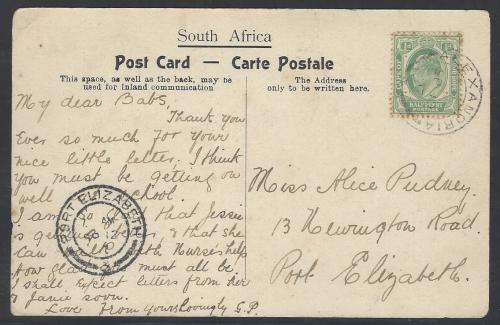 South Africa
Post Card — Carte Postale
This space, as well as the back, may be
used for Inland communication
The Address
only to be written here.
HALFPENNY
ALEXANDRIA
My dear Babs,
Thank you
Ever so much for your
nice little letter. I think
you must be getting on
well school.
I am that Jessie
is & that she
can with Nurse's help
How glad must all be.
I shall expect letters from her
& Janie soon.
Love from yours lovingly G.P.
PORT ELIZABETH
Miss Alice Pudney
13 Newington Road
Port Elizabeth.